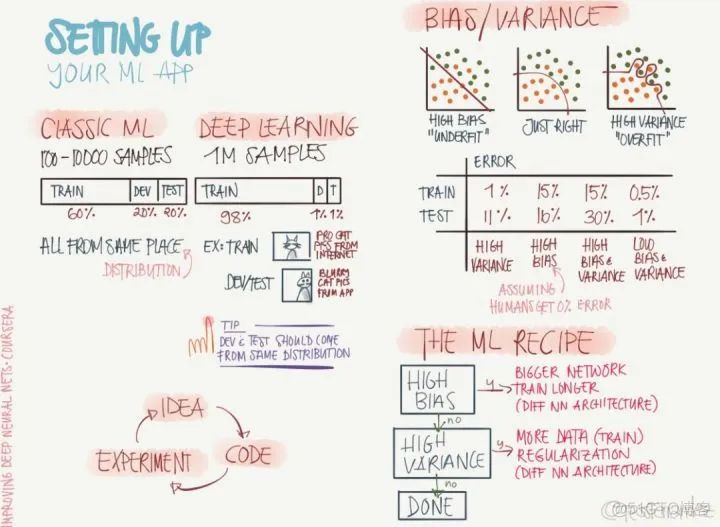 SETTING UP
YOUR ML APP
CLASSIC ML
100-10000 SAMPLES
TRAIN DEV TEST
60% 20% 20%
ALL FROM SAME PLACE
DISTRIBUTION
DEEP LEARNING
1M SAMPLES
TRAIN D T
98% 1% 1%
EX: TRAIN
PRO CAT
PICS FROM
INTERNET
DEV/TEST
BLURRY
CAT PICS
FROM APP
TIP
DEV & TEST SHOULD COME
FROM SAME DISTRIBUTION
IDEA
CODE
EXPERIMENT
IMPROVING DEEP NEURAL NETS · COURSERA
BIAS/VARIANCE
HIGH BIAS
"UNDERFIT"
JUST RIGHT
HIGH VARIANCE
"OVERFIT"
ERROR
TRAIN 1% 15% 15% 0.5%
TEST 11% 16% 30% 1%
HIGH
VARIANCE
HIGH
BIAS
HIGH
BIAS &
VARIANCE
LOW
BIAS &
VARIANCE
ASSUMING
HUMANS GET 0% ERROR
THE ML RECIPE
HIGH
BIAS
y
BIGGER NETWORK
TRAIN LONGER
(DIFF NN ARCHITECTURE)
no
HIGH
VARIANCE
y
MORE DATA (TRAIN)
REGULARIZATION
(DIFF NN ARCHITECTURE)
no
DONE